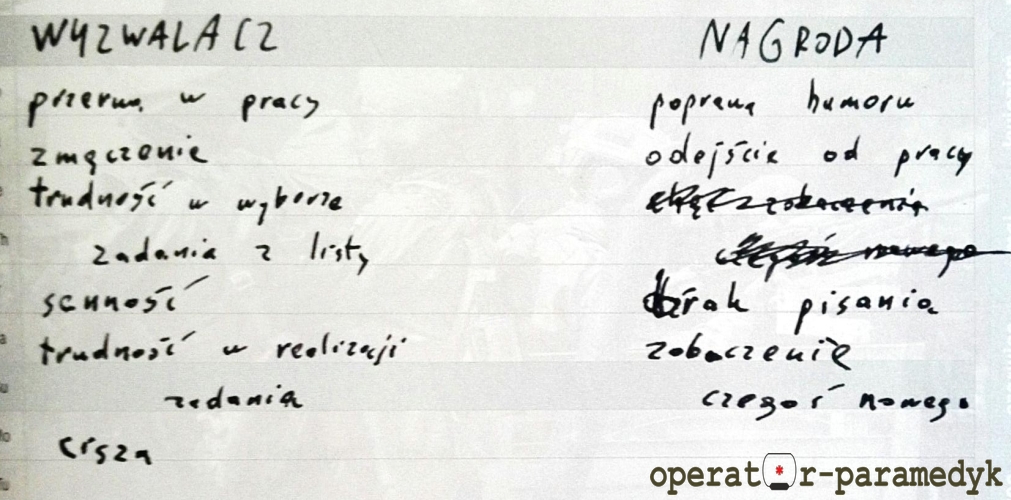 WYZWALACZ
przerwa w pracy
zmęczenie
trudność w wyborze
zadania z listy
senność
trudność w realizacji
zadania
cisza
NAGRODA
poprawa humoru
odejście od pracy
chęć zobaczenia
czegoś nowego
brak pisania
zobaczenie
czegoś nowego
operator-paramedyk